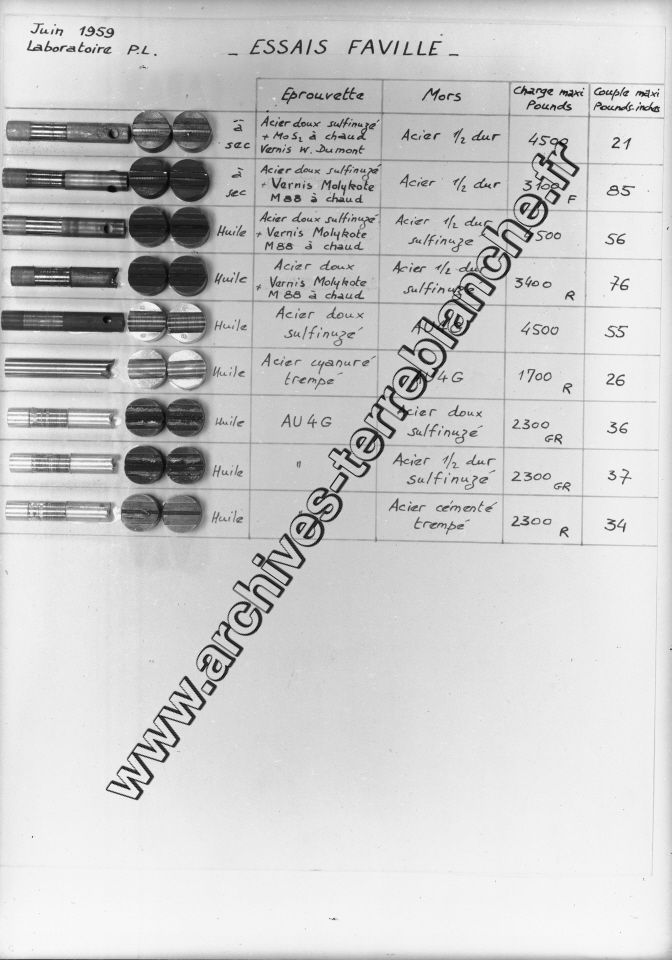 Juin 1959
Laboratoire P.L.
_ ESSAIS FAVILLE _
Eprouvette
Mors
Charge maxi
Pounds
Couple maxi
Pounds-inches
à
sec
Acier doux sulfinuzé
+ MoS2 à chaud
Vernis W. Dumont
Acier 1/2 dur
4500
21
à
sec
Acier doux sulfinuzé
+ Vernis Molykote
M88 à chaud
Acier 1/2 dur
3100 F
85
Huile
Acier doux sulfinuzé
+ Vernis Molykote
M88 à chaud
Acier 1/2 dur
sulfinuzé
500
56
Huile
Acier doux
+ Vernis Molykote
M88 à chaud
Acier 1/2 dur
sulfinuzé
3400 R
76
Huile
Acier doux
sulfinuzé
4500
55
Huile
Acier cyanuré
trempé
4G
1700 R
26
Huile
AU4G
Acier doux
sulfinuzé
2300 GR
36
Huile
"
Acier 1/2 dur
sulfinuzé
2300 GR
37
Huile
Acier cémenté
trempé
2300 R
34
www.archives-terreblanche.fr